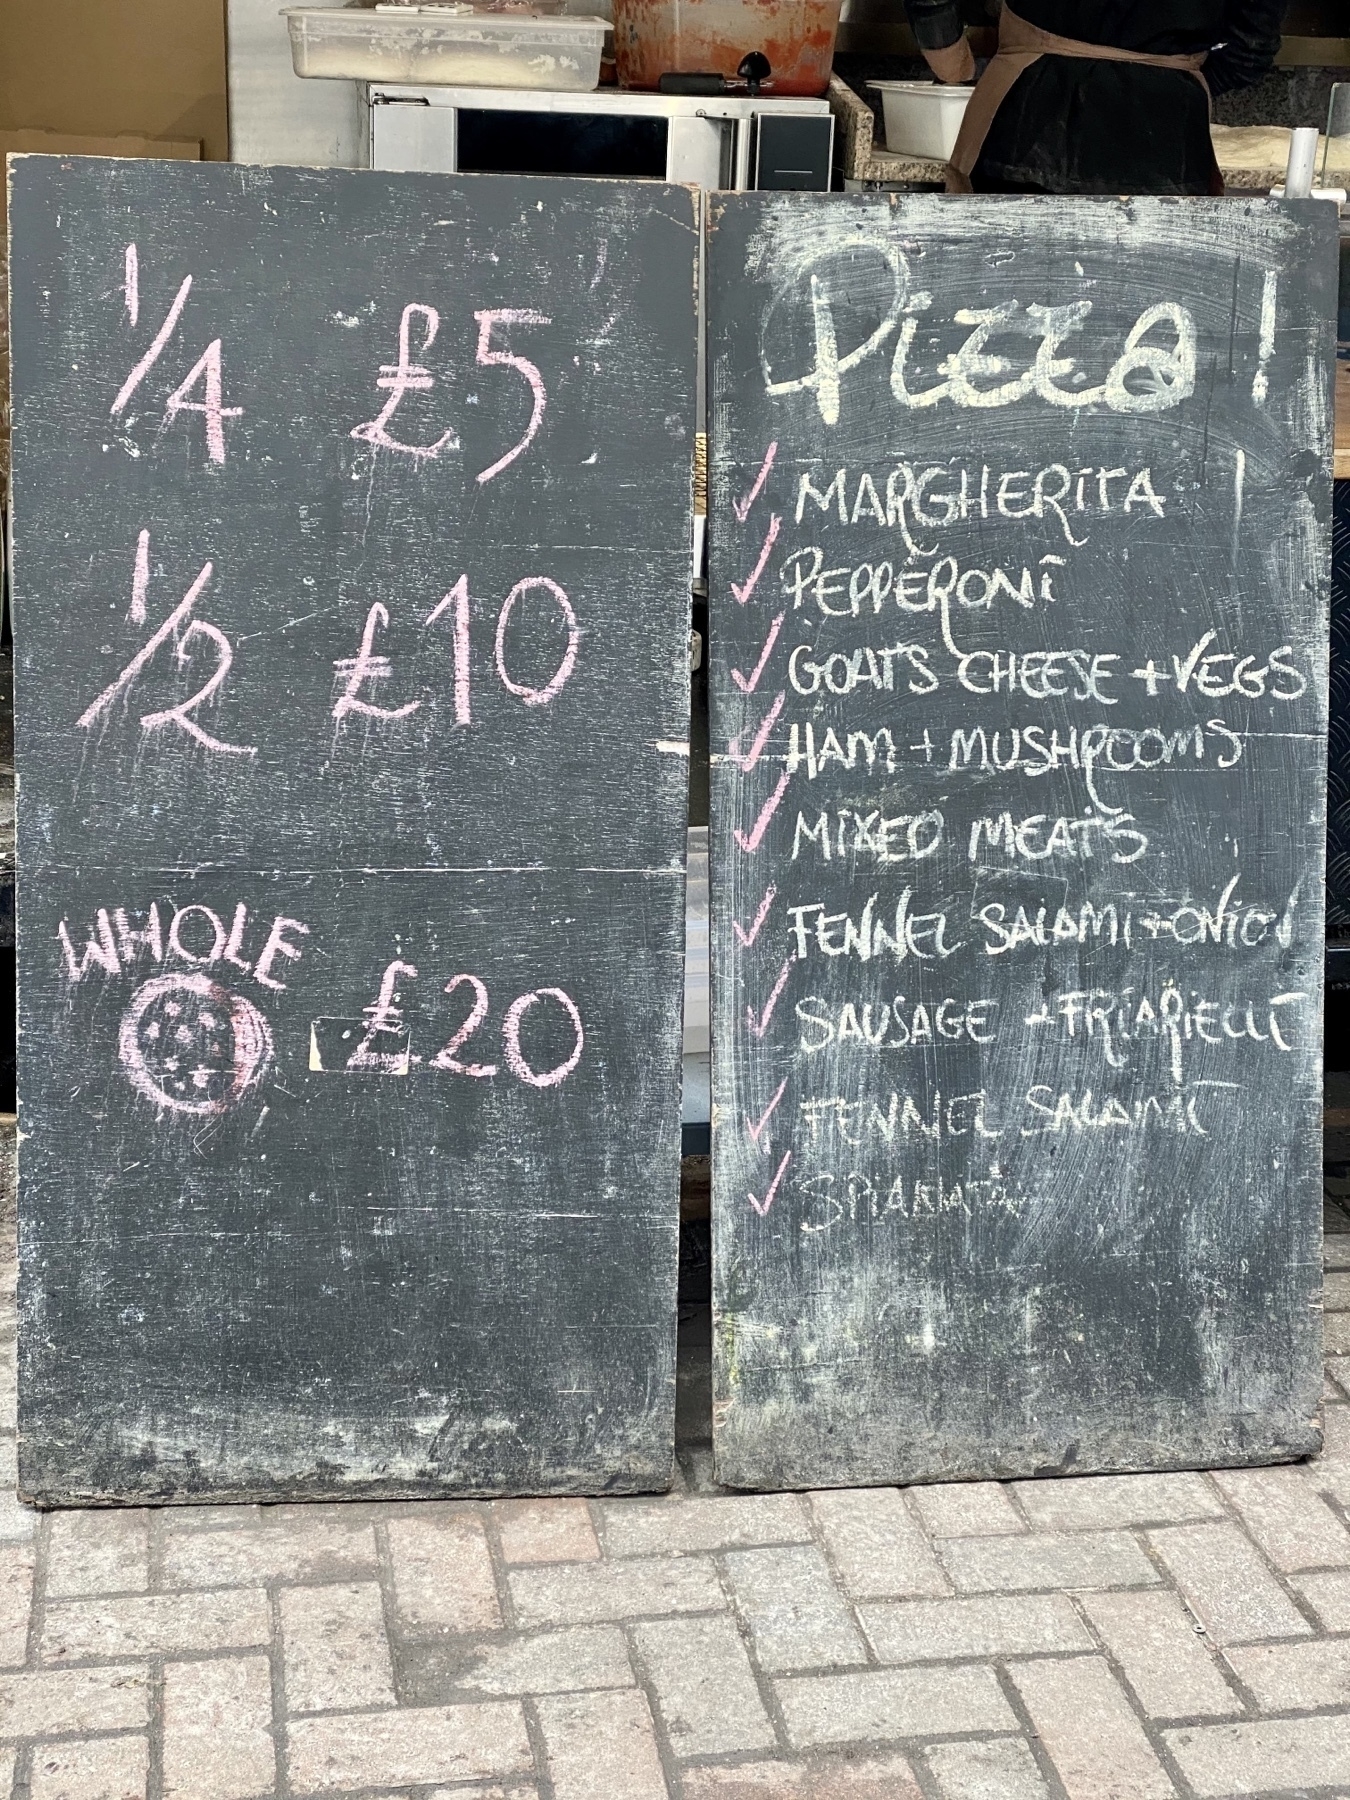 1/4 £5
1/2 £10
WHOLE
£20
Pizza!
MARGHERITA
PEPPERONI
GOATS CHEESE + VEGS
HAM + MUSHROOMS
MIXED MEATS
FENNEL SALAMI + ONION
SAUSAGE + FRIARIELLI
FENNEL SALAMI
SPIANATA